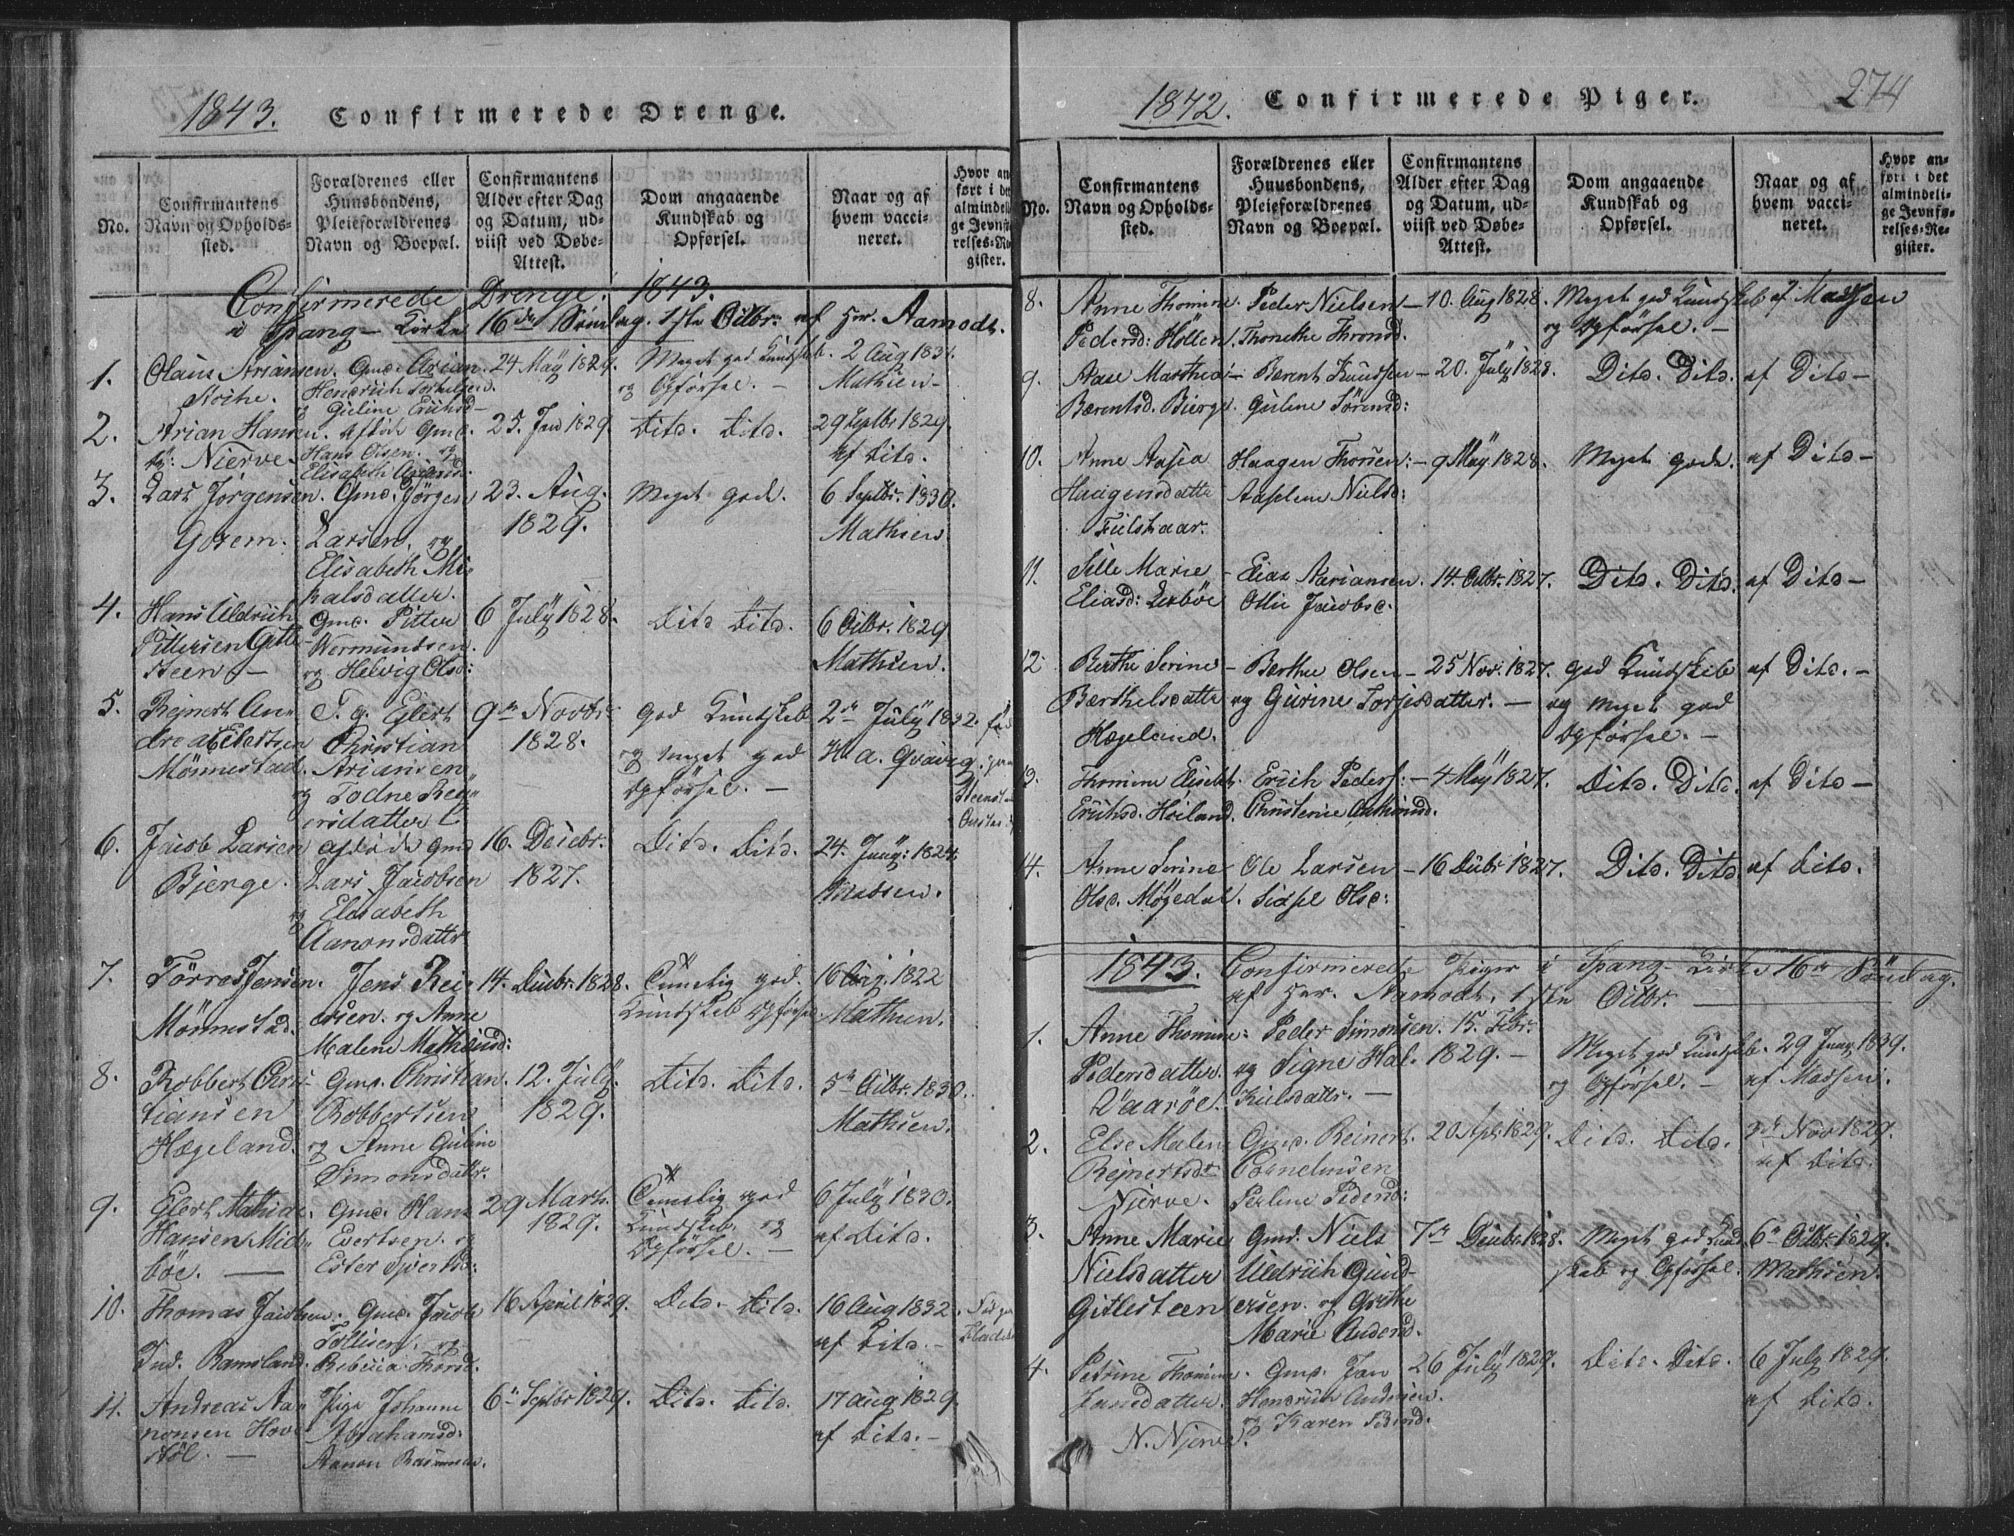 1843. Confirmerede Drenge.
No.
Confirmantens
Navn og Opholds-
sted.
Forældrenes eller
Huusbondens,
Pleieforældrenes
Navn og Boepæl.
Confirmantens
Alder efter Dag
og Datum, ud-
viist ved Døbe-
Attest.
Dom angaaende
Kundskab og
Opførsel.
Naar og af
hvem vacci-
neret.
Hvor an
ført i de
almindeli
ge Jevnfø
relses-Re
gister.
Confirmerede Drenge. 1843.
i Spang- Kirke 16de Søndag. 1ste Octbr. af Hr. Aamodt.
1.
Olaus Ariansen
Gmd. Arian
Hendrich
Gieline Erichsd
24 May 1829.
Meget god Kundskab
og Opførsel. –
2 Aug 1831.
Mathsen –
2.
Arian Hansen.
Nierve
Afdøde Gmd.
Hans Olsen. og
Elisabeth
25. Jan 1829.
Dito. Dito.
29 Septbr 1829.
af Dito.
3.
Lars Jørgensen.
Gosem.
Gmd. Jörgen
Larsen. og
Elisabeth Mi
kalsdatter.
23. Aug.
1829.
Meget gode.
6 Septbr. 1830.
Mathsen
4.
Hans Uldrich
Pittersen Gitle
steen –
Gmd. Pitter
Wermundsen.
og Helvig Olsd:
6 July 1828.
Dito Dito.
6 Octbr. 1829
Mathsen.
5.
Rejnert An-
Mönnestad.
T. g. Elert
Christian
Ariansen
og Todne Rei
ersdatter
9de Novbr.
1828.
God Kundskab
og meget god
Opförsel. –
2den July 1832.
6.
Jacob Larsen
Bjerge.
Afdøde Gmd
Lars Jacobsen
og Elisabeth
Aanonsdattr
16. Decbr.
1827.
Dito. Dito.
Madsen.
7.
Törres Jensen.
Mönnestad.
Jens Rei-
ersen. og Anne
Malene Mathiasd:
14. Decbr. 1828.
Temelig god
Kundskab Opførsel
1822
Mathsen.
8.
Robbert Chris-
tiansen
Hægeland.
Gmd. Christian
Robbertsen
og Anne Guline
Simonsdattr.
12. July
1829.
Dito. Dito.
5te Octbr. 1830.
Mathsen.
9.
Elert Mathias
Hansen Mid-
böe. –
Gmd. Hans
Evertsen. og
Ester Sivertsd:
29 Marts
1829.
Temelig god
Kundskab og
Opförsel. –
6 July 1830.
af Dito.
10.
Thomas Jacobsen
Ind. Ramsland.
Gmd. Jacob
Tollisen. og
Rebecca Thorsd.
16 April 1829.
Dito. Dito.
16 Aug 1832
af Dito. –
11.
Andreas Aa-
nonsen Hove
Höl. –
Pige Johanne
Abrahamsd:
Aanon Rasmussen.
6te Septbr 1829.
Dito. Dito.
17 Aug 1829.
af Dito. –
1842. Confirmerede Piger. 274
No.
Confirmantens
Navn og Opholds-
sted.
Forældrenes eller
Huusbondens,
Pleieforældrenes
Navn og Boepæl.
Confirmantens
Alder efter Dag
og Datum, ud-
viist ved Døbe-
Attest.
Dom angaaende
Kundskab og
Opførsel.
Naar og af
hvem vacci-
neret.
Hvor an-
ført i det
almindeli-
ge Jevnfø-
relses-Re-
gister.
8.
Anne Thomine
Pedersd: Höllen
Peder Nielsen
Thonethe Thronsd.
10. Aug 1828.
Meget god Kundskab
og Opförsel. –
af Madsen
9.
Aase Marthea
Bærentsd. Bjerge.
Bærent Knudsen
Guline Sörensd:
20. July 1828.
Dito. Dito.
af Dito –
10.
Anne Aasea
Haagensdatte
Fuilskaar.
Haagen Thorsen:
Aaslene Nielsd:
9 May 1828.
Meget gode.
af Dito –
11.
Sille Marie
Eliasd: Lexböe
Elias Aariansen.
Ollie Jacobsd.
14. Octbr. 1827.
Dito. Dito.
af Dito –
12
Berthe Serine
Bærthelsdatte
Hægeland.
Barthel Olsen
og Gurine Torjesdatter. –
25 Nov. 1827.
God Kundskab
og meget god
Opförsel. –
af Dito. –
13.
Thomine Elisebt.
Erichsd. Höiland.
Erich Peders:
Christine
4 May 1827.
Dito. Dito.
af Dito –
14.
Anne Serine
Olsd. Møgedal.
Ole Larsen
Sidsel Olsd:
16 Decbr 1827.
Dito. Dito
af Dito.
1843. Confirmerede Piger i Spang- Kirke 16de Söndag.
af Hr. Aamodt. 1sten Octbr.
1.
Anne Thomine
Pedersdatter.
Vaaröe.
Peder Simonsen.
og Signe Hal-
kielsdattr. –
15. Febr.
1829. –
Meget god Kundskab.
og Opförsel. –
af Madsen.
2.
Else Malene
Rejnertsdr
Njerve.
Gmd. Reinert.
Corneliusen
Perline Pedersd:
20 Apl: 1829.
Dito. Dito.
3de Nov 1829.
af Dito.
3.
Anne Marie
Nielsdatter
Gitlesteen
Gmd. Niels
Uldrich Gund-
ersen. og Grethe
Marie Andersd.
7de Decbr 1828.
Meget god Kund
skab og Opförsel.
6te Octbr. 1829.
Mathsen.
4.
Petrine Thomine
Jansdatter.
N. Njerve.
Gmd. Jan
Hendrich Andersen
og Karen Pedersd.
26 July 1829.
Dito. Dito.
6 July 1829.
af Dito.